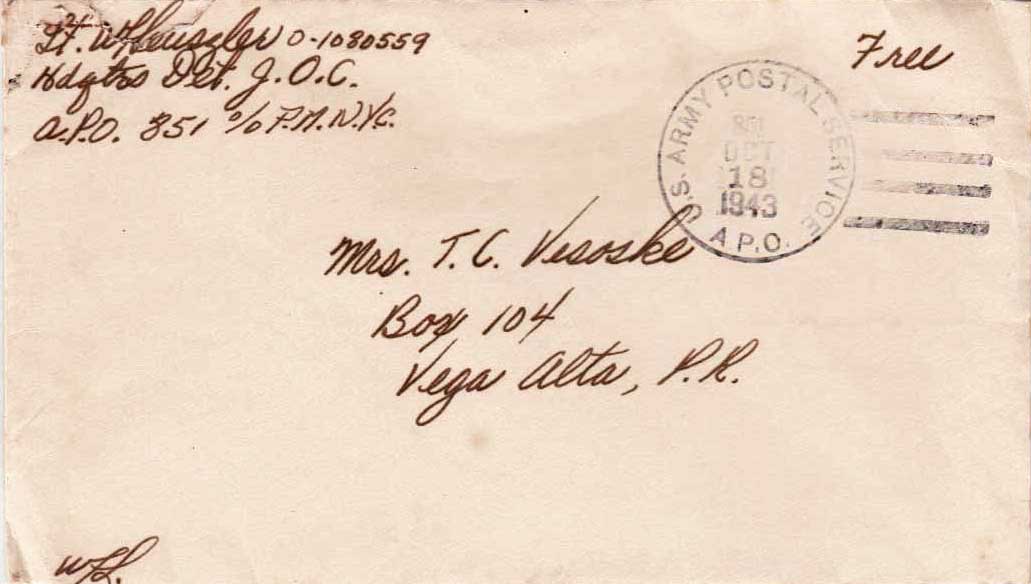 Lt. W Heuszler O-1080559
Hdqtrs Det. J.O.C.
A.P.O. 851 c/o P.M. N.Y.C.
Free
U.S. ARMY POSTAL SERVICE
851
OCT
18
1943
A.P.O.
Mrs. T. C. Vesoske
Box 104
Vega Alta, P.R.